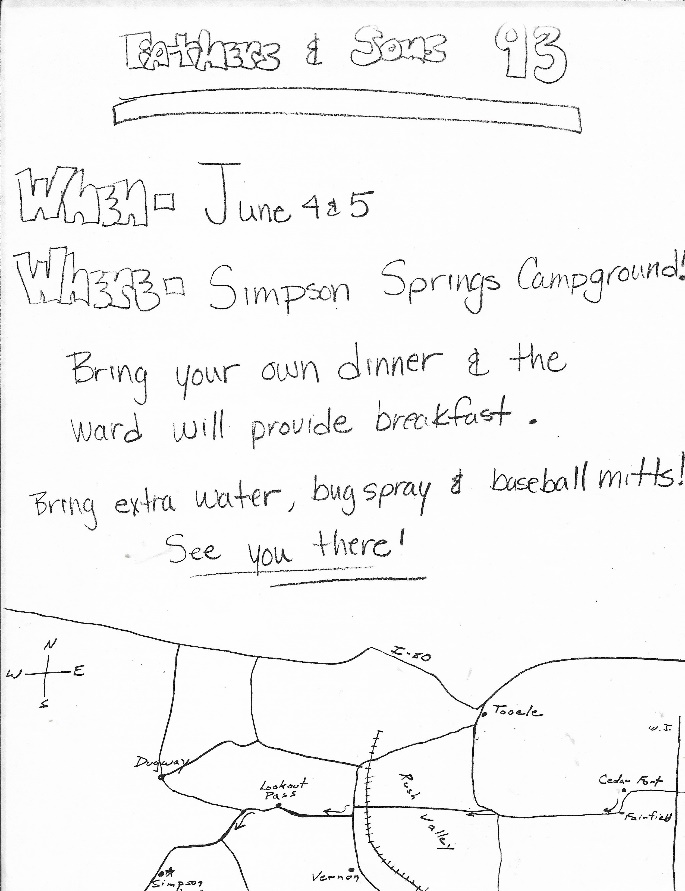 Fathers & Sons 93
When= June 4 & 5
Where= Simpson Springs Campground!
Bring your own dinner & the
ward will provide breakfast.
Bring extra water, bug spray & baseball mitts!
See you there!
N
W E
S
I-80
Tooele
W.J.
Dugway
Lookout
Pass
Rush
Valley
Cedar Fort
Fairfield
Simpson
Vernon